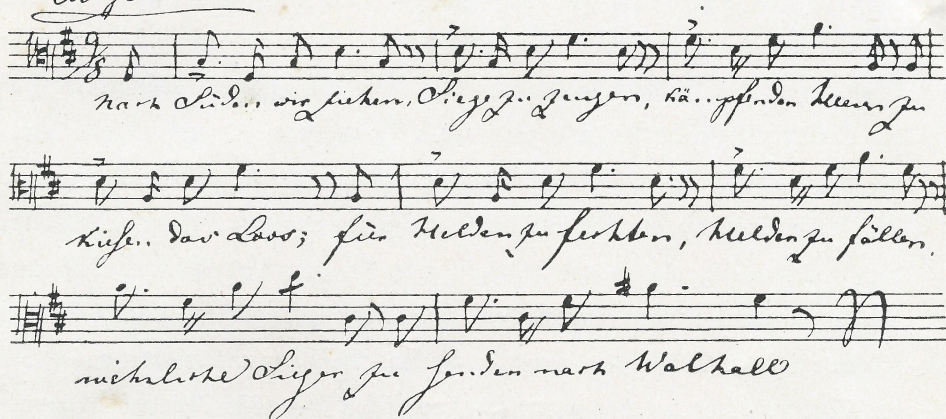 9/8
nach Süden wir ziehen, Siege zu zeugen, kämpfenden Heeren zu
kiesen das Loos; für Helden zu fechten, Helden zu fällen,
Sieger zu senden nach Walhall